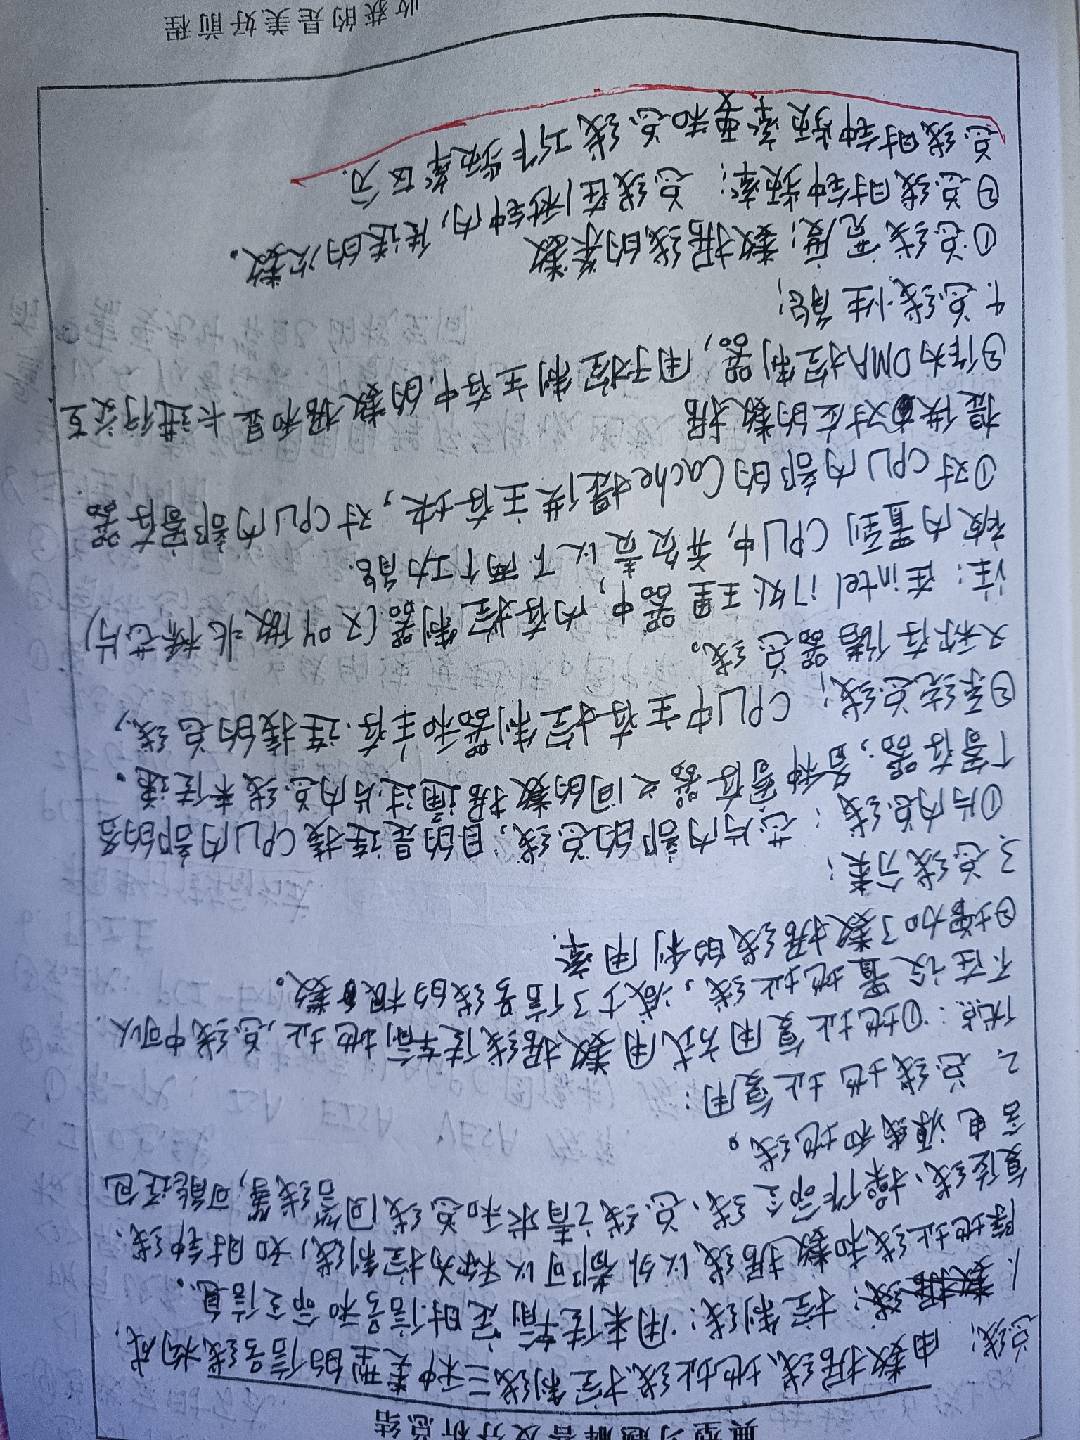 典型习题解答及分析总结
总线：由数据线、地址线、控制线三种类型的信号线构成，
1. 数据线：控制线：用来传输定时信号和命令信息。
除地址线和数据线以外都可以称为控制线，如时钟线、
复位线、操作命令线、总线请求和总线回答线等，可能还包
含电源线和地线。
2. 总线地址复用：
优点：①地址复用方式用数据线传输地址，总线中可以
不在设置地址线，减少了信号线的根数。
②增加了数据线的利用率.
3. 总线分类：
①片内总线：芯片内部的总线，目的是连接CPU内部的各
个寄存器；各种寄存器之间的数据通过片内总线来传递。
②系统总线：CPU中主存控制器和主存.连接的总线，
又称存储器总线。
注：在intel i7处理器中，内存控制器（又叫做北桥芯片）
被内置到CPU中，并负责以下两个功能.
①对CPU内部的Cache提供主存块，对CPU内部寄存器
提供对应的数据
②作为DMA控制器，用于控制主存中的数据和显卡进行交互.
4. 总线性能：
①总线宽度：数据线的条数
②总线时钟频率：总线在1秒钟内，传送的次数。
总线时钟频率要和总线工作频率区分.
收获的是美好前程